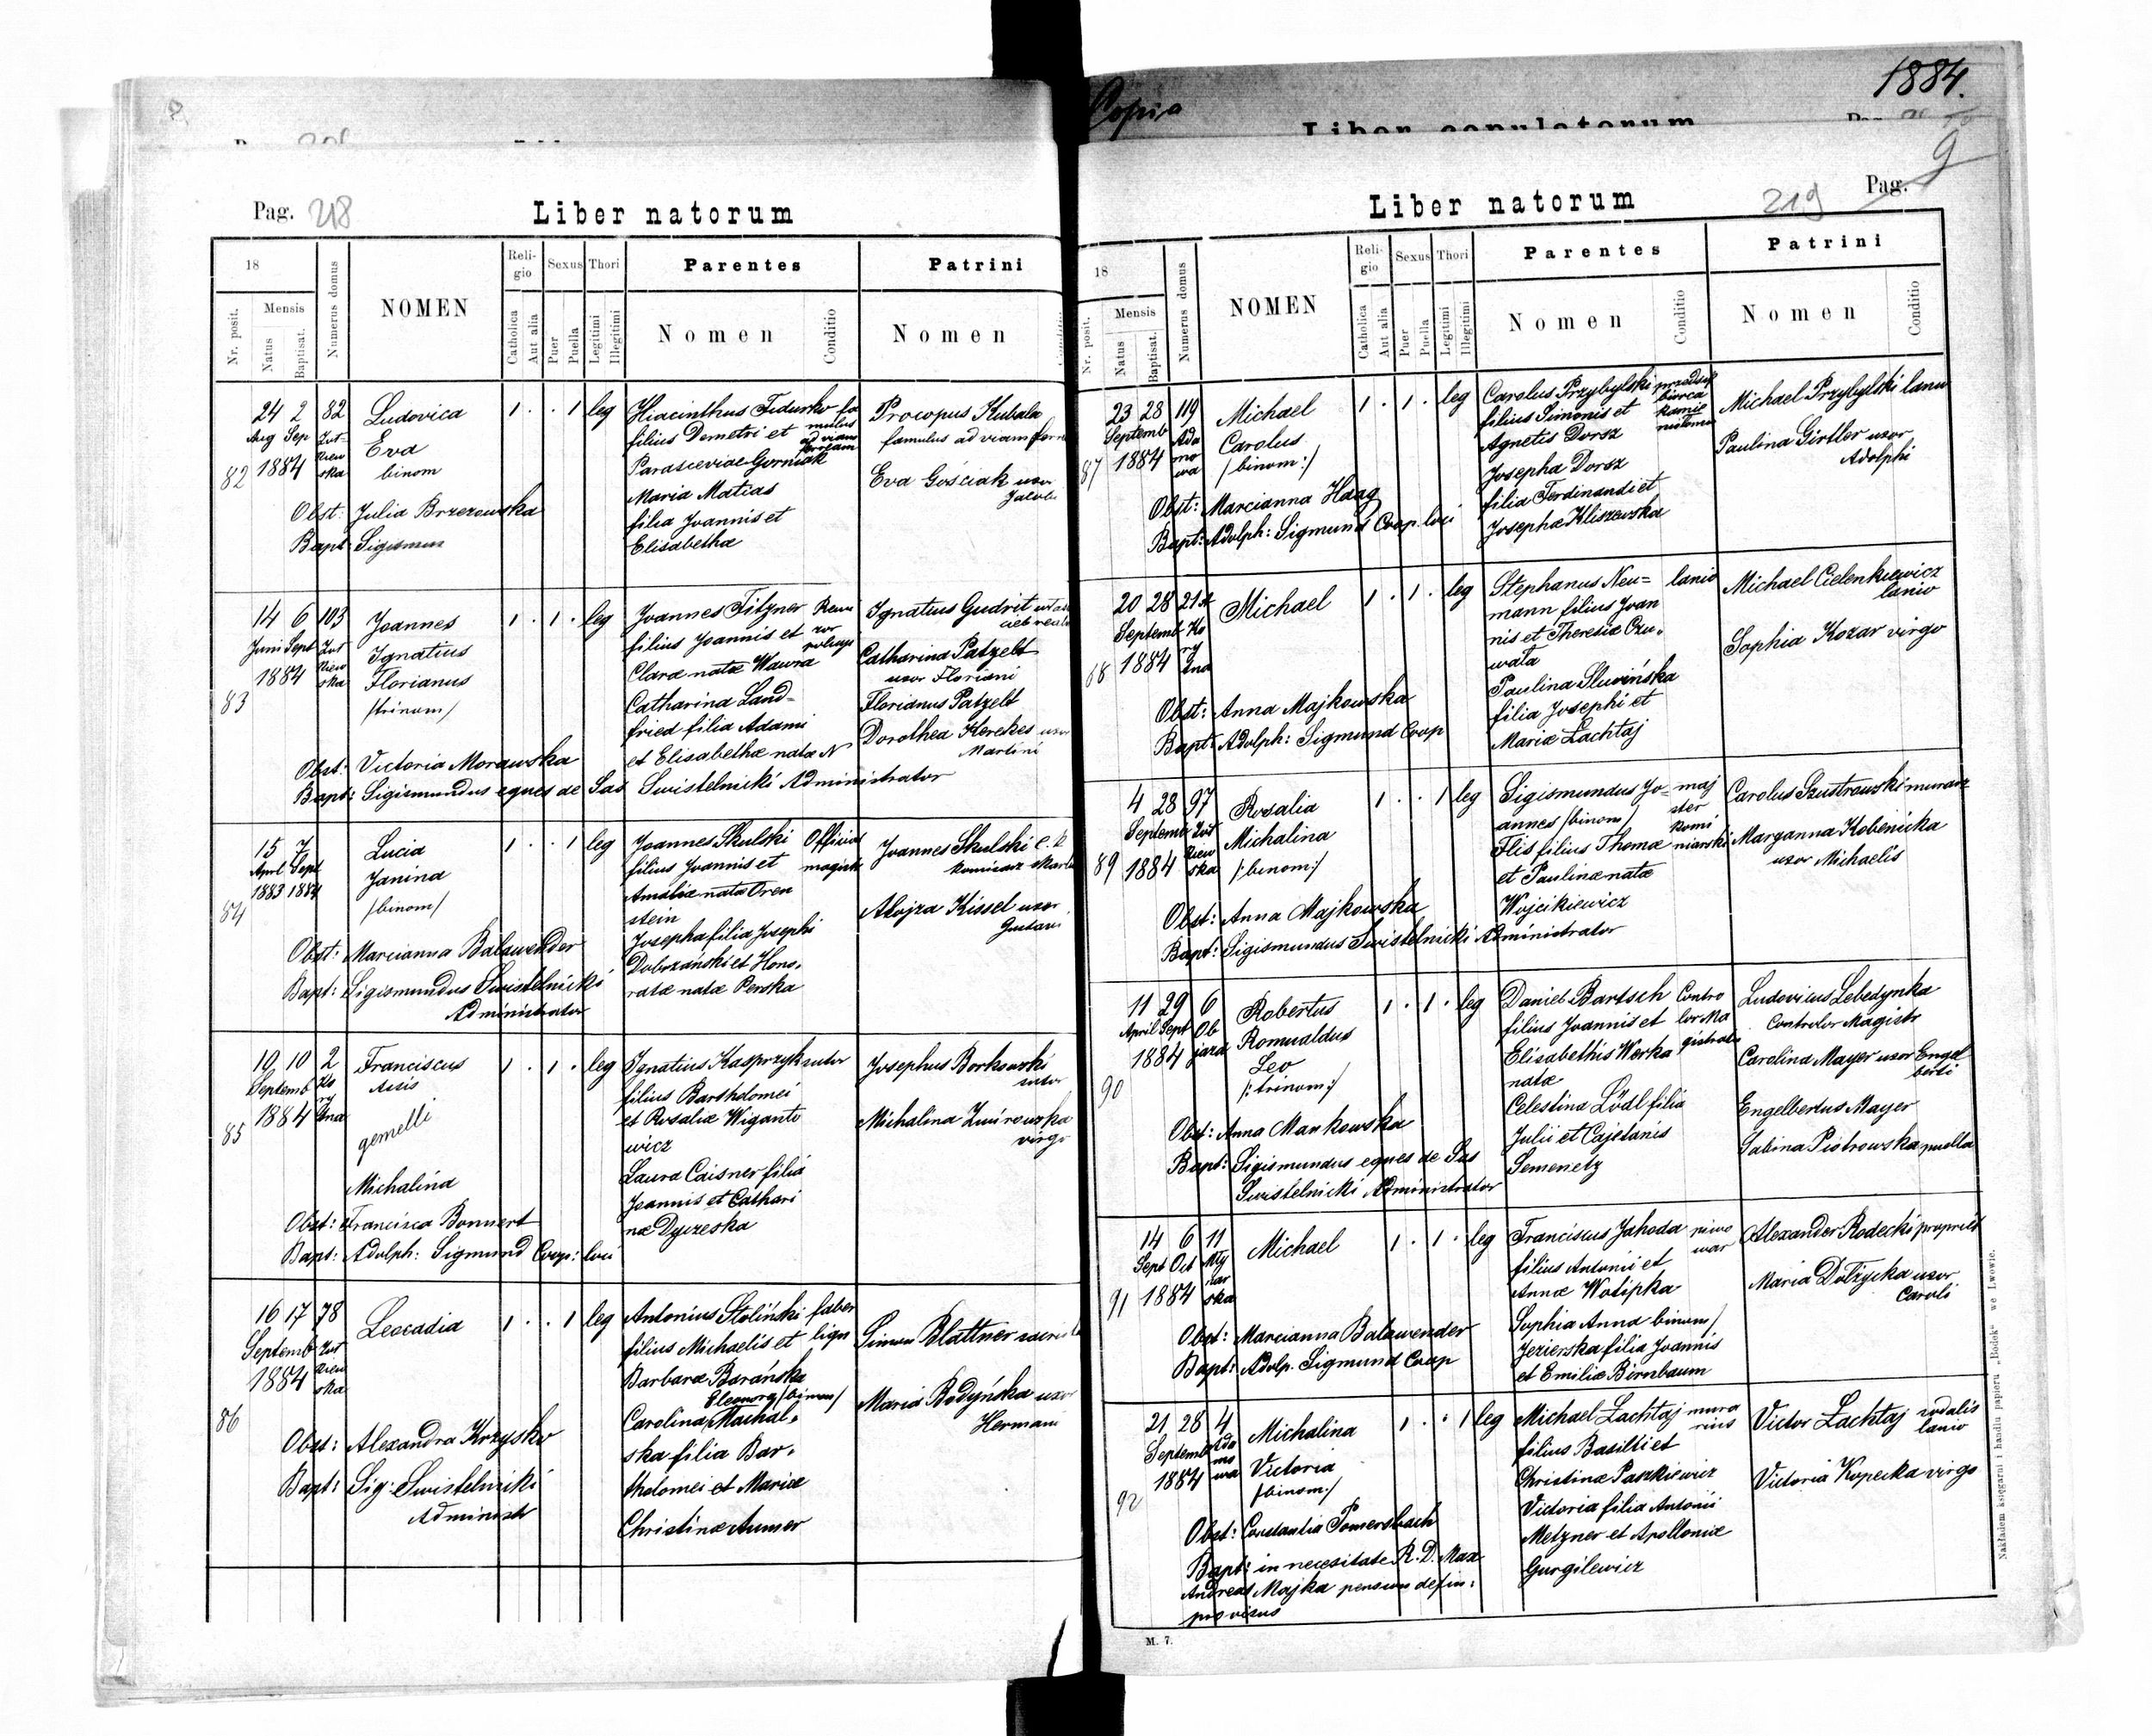 1884.
Copia
Liber copulatorum
9
Pag. 218
Liber natorum
18
Reli-
gio
Sexus
Thori
Parentes
Patrini
Nr. posit.
Mensis
Natus
Baptisat.
Numerus domus
NOMEN
Catholica
Aut alia
Puer
Puella
Legitimi
Illegitimi
Nomen
Conditio
Nomen
82
24 2 82
Aug Sep
1884
Ludovica
Eva
binom
1 . . 1 leg
Hiacinthus Fidurko
filius Demetri et
Parasceviae Gorniak
Maria Matias
filia Joannis et
Elisabethæ
Procopus Kubala
famulus ad viam
Eva Gościak uxor
Jacobi
Obst: Julia Brzezowska
Bapt:
83
14 6 103
Juni Sept
1884
Joannes
Ignatius
Florianus
/trinom/
1 . 1 . leg
Joannes Fitzner
filius Joannis et
Claræ natæ Wawra
Catharina Land-
fried filia Adami
et Elisabethæ natæ N
Ignatius Gudrit
Catharina Patzelt
uxor Floriani
Florianus Patzelt
Dorothea Kerekes uxor
Martini
Obst: Victoria Morawska
Bapt: Sigismundus eques de Sas Swistelnicki Administrator
84
15 7
April Sept
1883 1884
Lucia
Janina
/binom/
1 . . 1 leg
Joannes Skulski
filius Joannis et
Amaliæ natæ Oren
stein
Josepha filia Josephi
Dobrzański et Hono-
ratæ natæ Perska
Joannes Skulski c.k
Alojza Kissel uxor
Gustavi
Obst: Marcianna Balawender
Bapt: Sigismundus Swistelnicki
Administrator
85
10 10 2
Septemb
1884
Franciscus
Assis
gemelli
Michalina
1 . 1 . leg
Ignatius Kasprzyk sutor
filius Bartholomei
et Rosaliæ Wiganto
wicz
Laura Caisner filia
Joannis et Cathari
næ Dyczeska
Josephus Borkowski
sutor
Michalina Zmirowska
virgo
Obst: Francisca Bonnert
Bapt: Adolph: Sigmund Coop: loci
86
16 17 78
Septemb
1884
Leocadia
1 . . 1 leg
Antonius Stoliński faber
filius Michaelis et lign
Barbaræ Barańska
Eleonora /binom/
Carolina Machal-
ska filia Bar-
tholomei et Mariæ
Christinæ Aumer
Simon Blattner
Maria Bodyńska uxor
Hermani
Obst: Alexandra Krzysko
Bapt: Sig: Swistelnicki
Administr
219
Pag.
Liber natorum
18
Reli-
gio
Sexus
Thori
Parentes
Patrini
Nr. posit.
Mensis
Natus
Baptisat.
Numerus domus
NOMEN
Catholica
Aut alia
Puer
Puella
Legitimi
Illegitimi
Nomen
Conditio
Nomen
Conditio
87
23 28 119
Septemb
1884
Ada
mo
wa
Michael
Carolus
/binom:/
1 . 1 . leg
Carolus Przybylski
filius Simonis et
Agnetis Dorsz
Josepha Dorsz
filia Ferdinandi et
Josephæ Kliszewska
Michael Przybylski
Paulina Girtler uxor
Adolphi
Obst: Marcianna Haag
Bapt: Adolph: Sigmund Coop. loci
88
20 28
Septemb
1884
Michael
1 . 1 . leg
Stephanus Neu= lanio
mann filius Joan
nis et Theresiæ Czu-
wata
Paulina Sliwińska
filia Josephi et
Mariæ Lachtaj
Michael Cielenkiewicz
lanio
Sophia Kozar virgo
Obst: Anna Majkowska
Bapt: Adolph: Sigmund Coop
89
4 28 97
Septemb
1884
Rosalia
Michalina
/:binom:/
1 . . 1 leg
Sigismundus Jo= maj
annes /binom/ ster
Flis filius Thomæ
et Paulinæ natæ
Wojcikiewicz
komi
niarski
Carolus Szustrowski murarz
Marganna Kobenicka
uxor Michaelis
Obst: Anna Majkowska
Bapt: Sigismundus Swistelnicki Administrator
90
11 29 6
April Sept
1884
Ob
jazd
Robertus
Romualdus
Leo
/:trinom:/
1 . 1 . leg
Daniel Bartsch Contro
filius Joannis et lor Ma
Elisabethis Werka gistratis
natæ
Celestina Lödl filia
Julii et Cajetanis
Semenetz
Ludovicus Lebedynka
Controlor Magistr
Carolina Mayer uxor Engel
berti
Engelbertus Mayer
Sabina Piotrowska puella
Obst: Anna Mankowska
Bapt: Sigismundus eques de Sas
Swistelnicki Administrator
91
14 6 11
Sept Oct
1884
Mły
nar
ska
Michael
1 . 1 . leg
Franciscus Jahoda piwo
filius Antonii et war
Annæ Wotipka
Sophia Anna binom/
Jezierska filia Joannis
et Emiliæ Birnbaum
Alexander Rodecki propriet
Maria Dołżycka uxor
Caroli
Obst: Marcianna Balawender
Bapt: Adolp. Sigmund Coop
92
21 28 4
Septemb
1884
Ada
mo
wa
Michalina
Victoria
/binom:/
1 . . 1 leg
Michael Lachtaj mura
filius Basilii et rius
Christinæ Paszkiewicz
Victoria filia Antonii
Metzner et Apolloniæ
Gurgilewicz
Victor Lachtaj sodalis
lanio
Victoria Kopecka virgo
Obst: Constantia Pomersbach
Bapt: in necesitate R. D. Max
Andreas Majka pension defin:
provisus
M. 7.
Nakładem księgarni i handlu papieru „Bodek" we Lwowie.